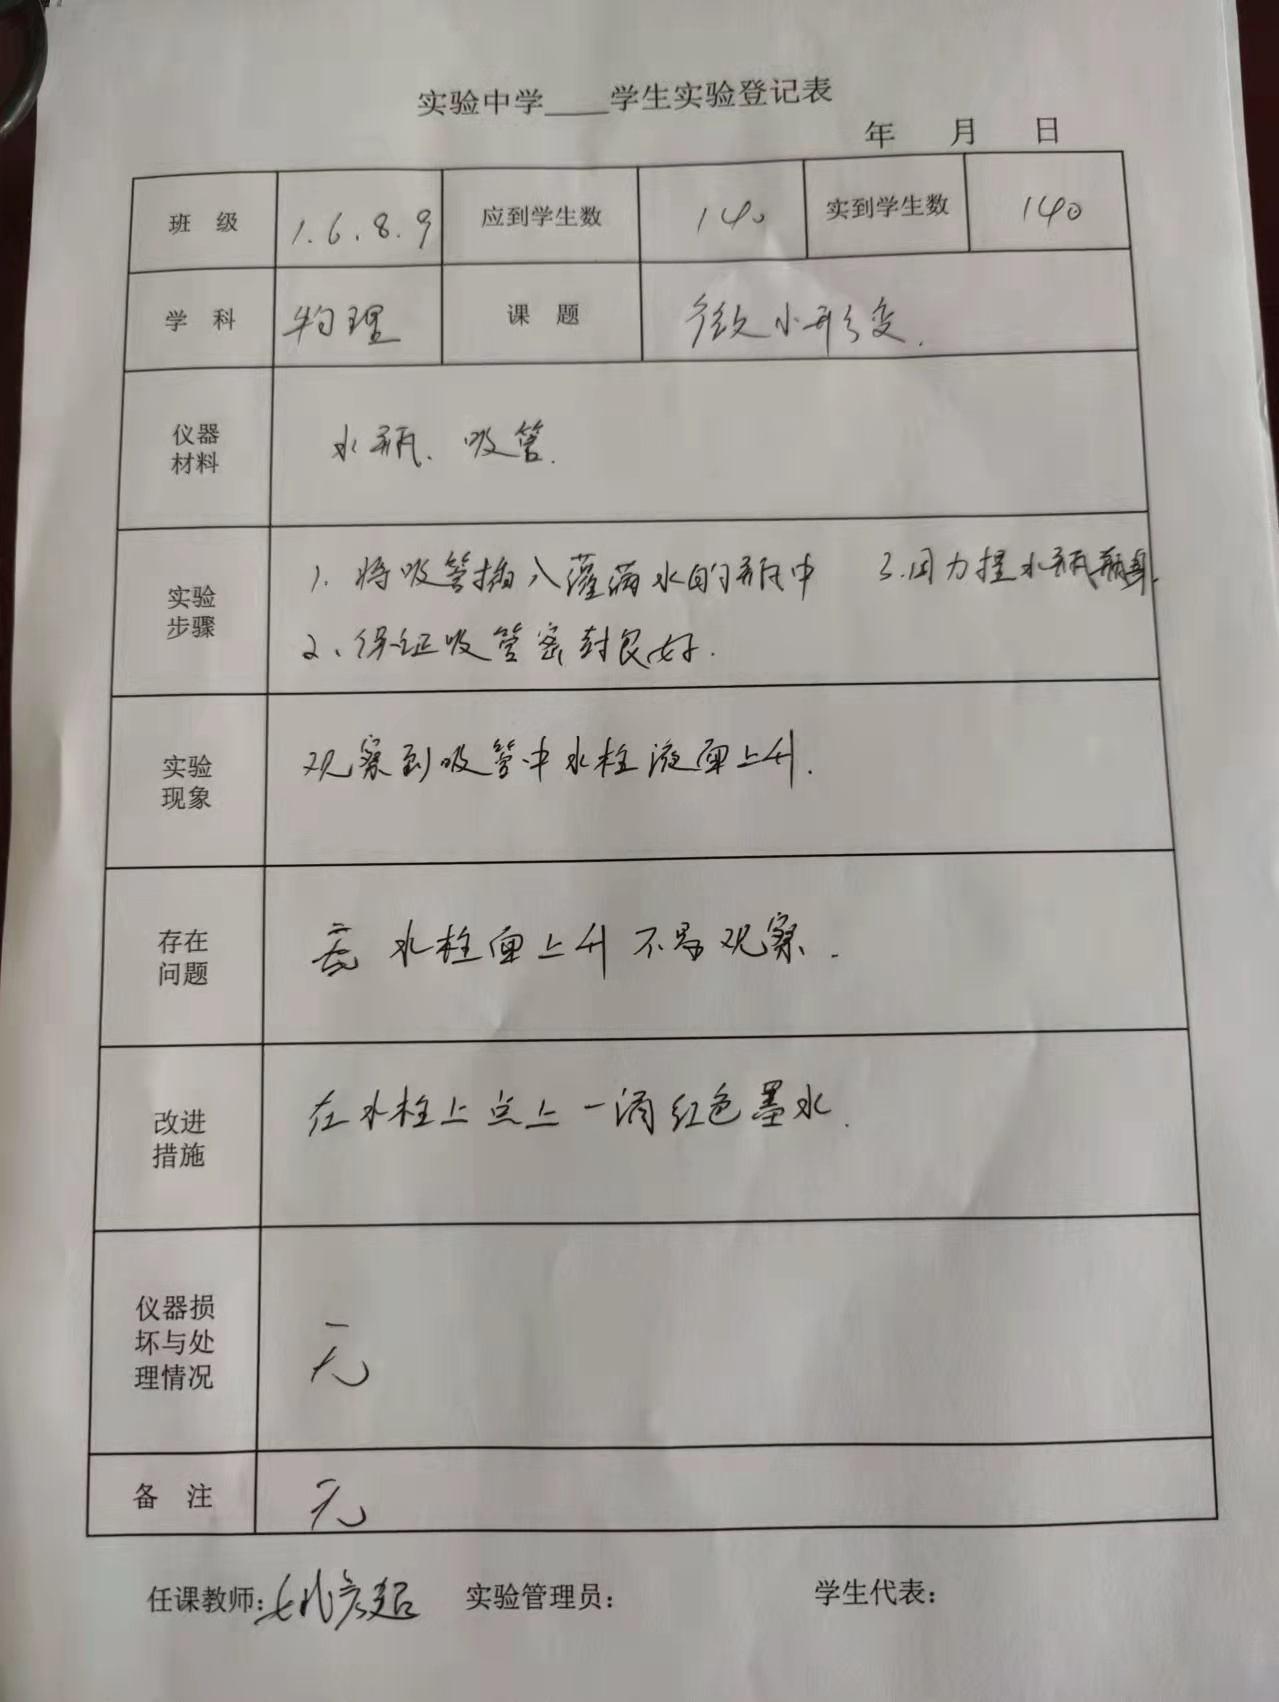 实验中学____学生实验登记表
年 月 日
班 级 1.6.8.9 应到学生数 140 实到学生数 140
学 科 物理 课 题 微小形变.
仪器
材料
水瓶、吸管.
实验
步骤
1. 将吸管插入灌满水的瓶中 3.用力捏水瓶瓶身.
2、保证吸管密封良好.
实验
现象
观察到吸管中水柱液面上升.
存在
问题
水柱面上升不易观察.
改进
措施
在水柱上点上一滴红色墨水.
仪器损
坏与处
理情况
无
备 注 无
任课教师: 实验管理员: 学生代表: